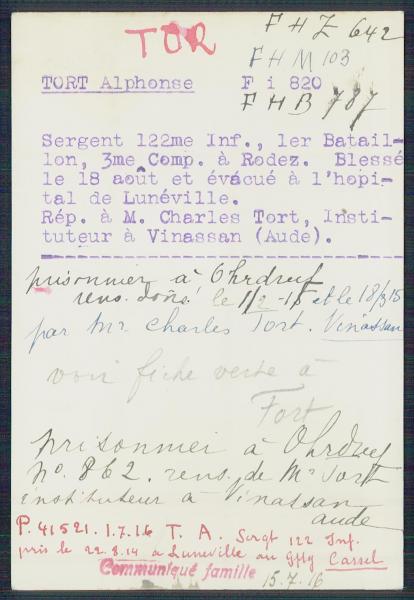 TOR
F H Z 642
F H M 103
TORT Alphonse F i 820
F H B 787
Sergent 122me Inf., 1er Batail-
lon, 3me Comp. à Rodez. Blessé
le 18 août et évacué à l'hopi-
tal de Lunéville.
Rép. à M. Charles Tort, Insti-
tuteur à Vinassan (Aude).
prisonnier à Ohrdruf
rens. donné le 1/2-15 et le 18/3 15
par Mr Charles Tort. Vinassan
voir fiche verte à
Fort
prisonnier à Ohrdruf
no. 862. rens. de Mr Tort
instituteur à Vinassan
aude
P. 41521. 1.7.16 T. A. Sergt 122 Inf.
pris le 22.8.14 à Luneville au Gflg Cassel
Communiqué famille
15.7.16